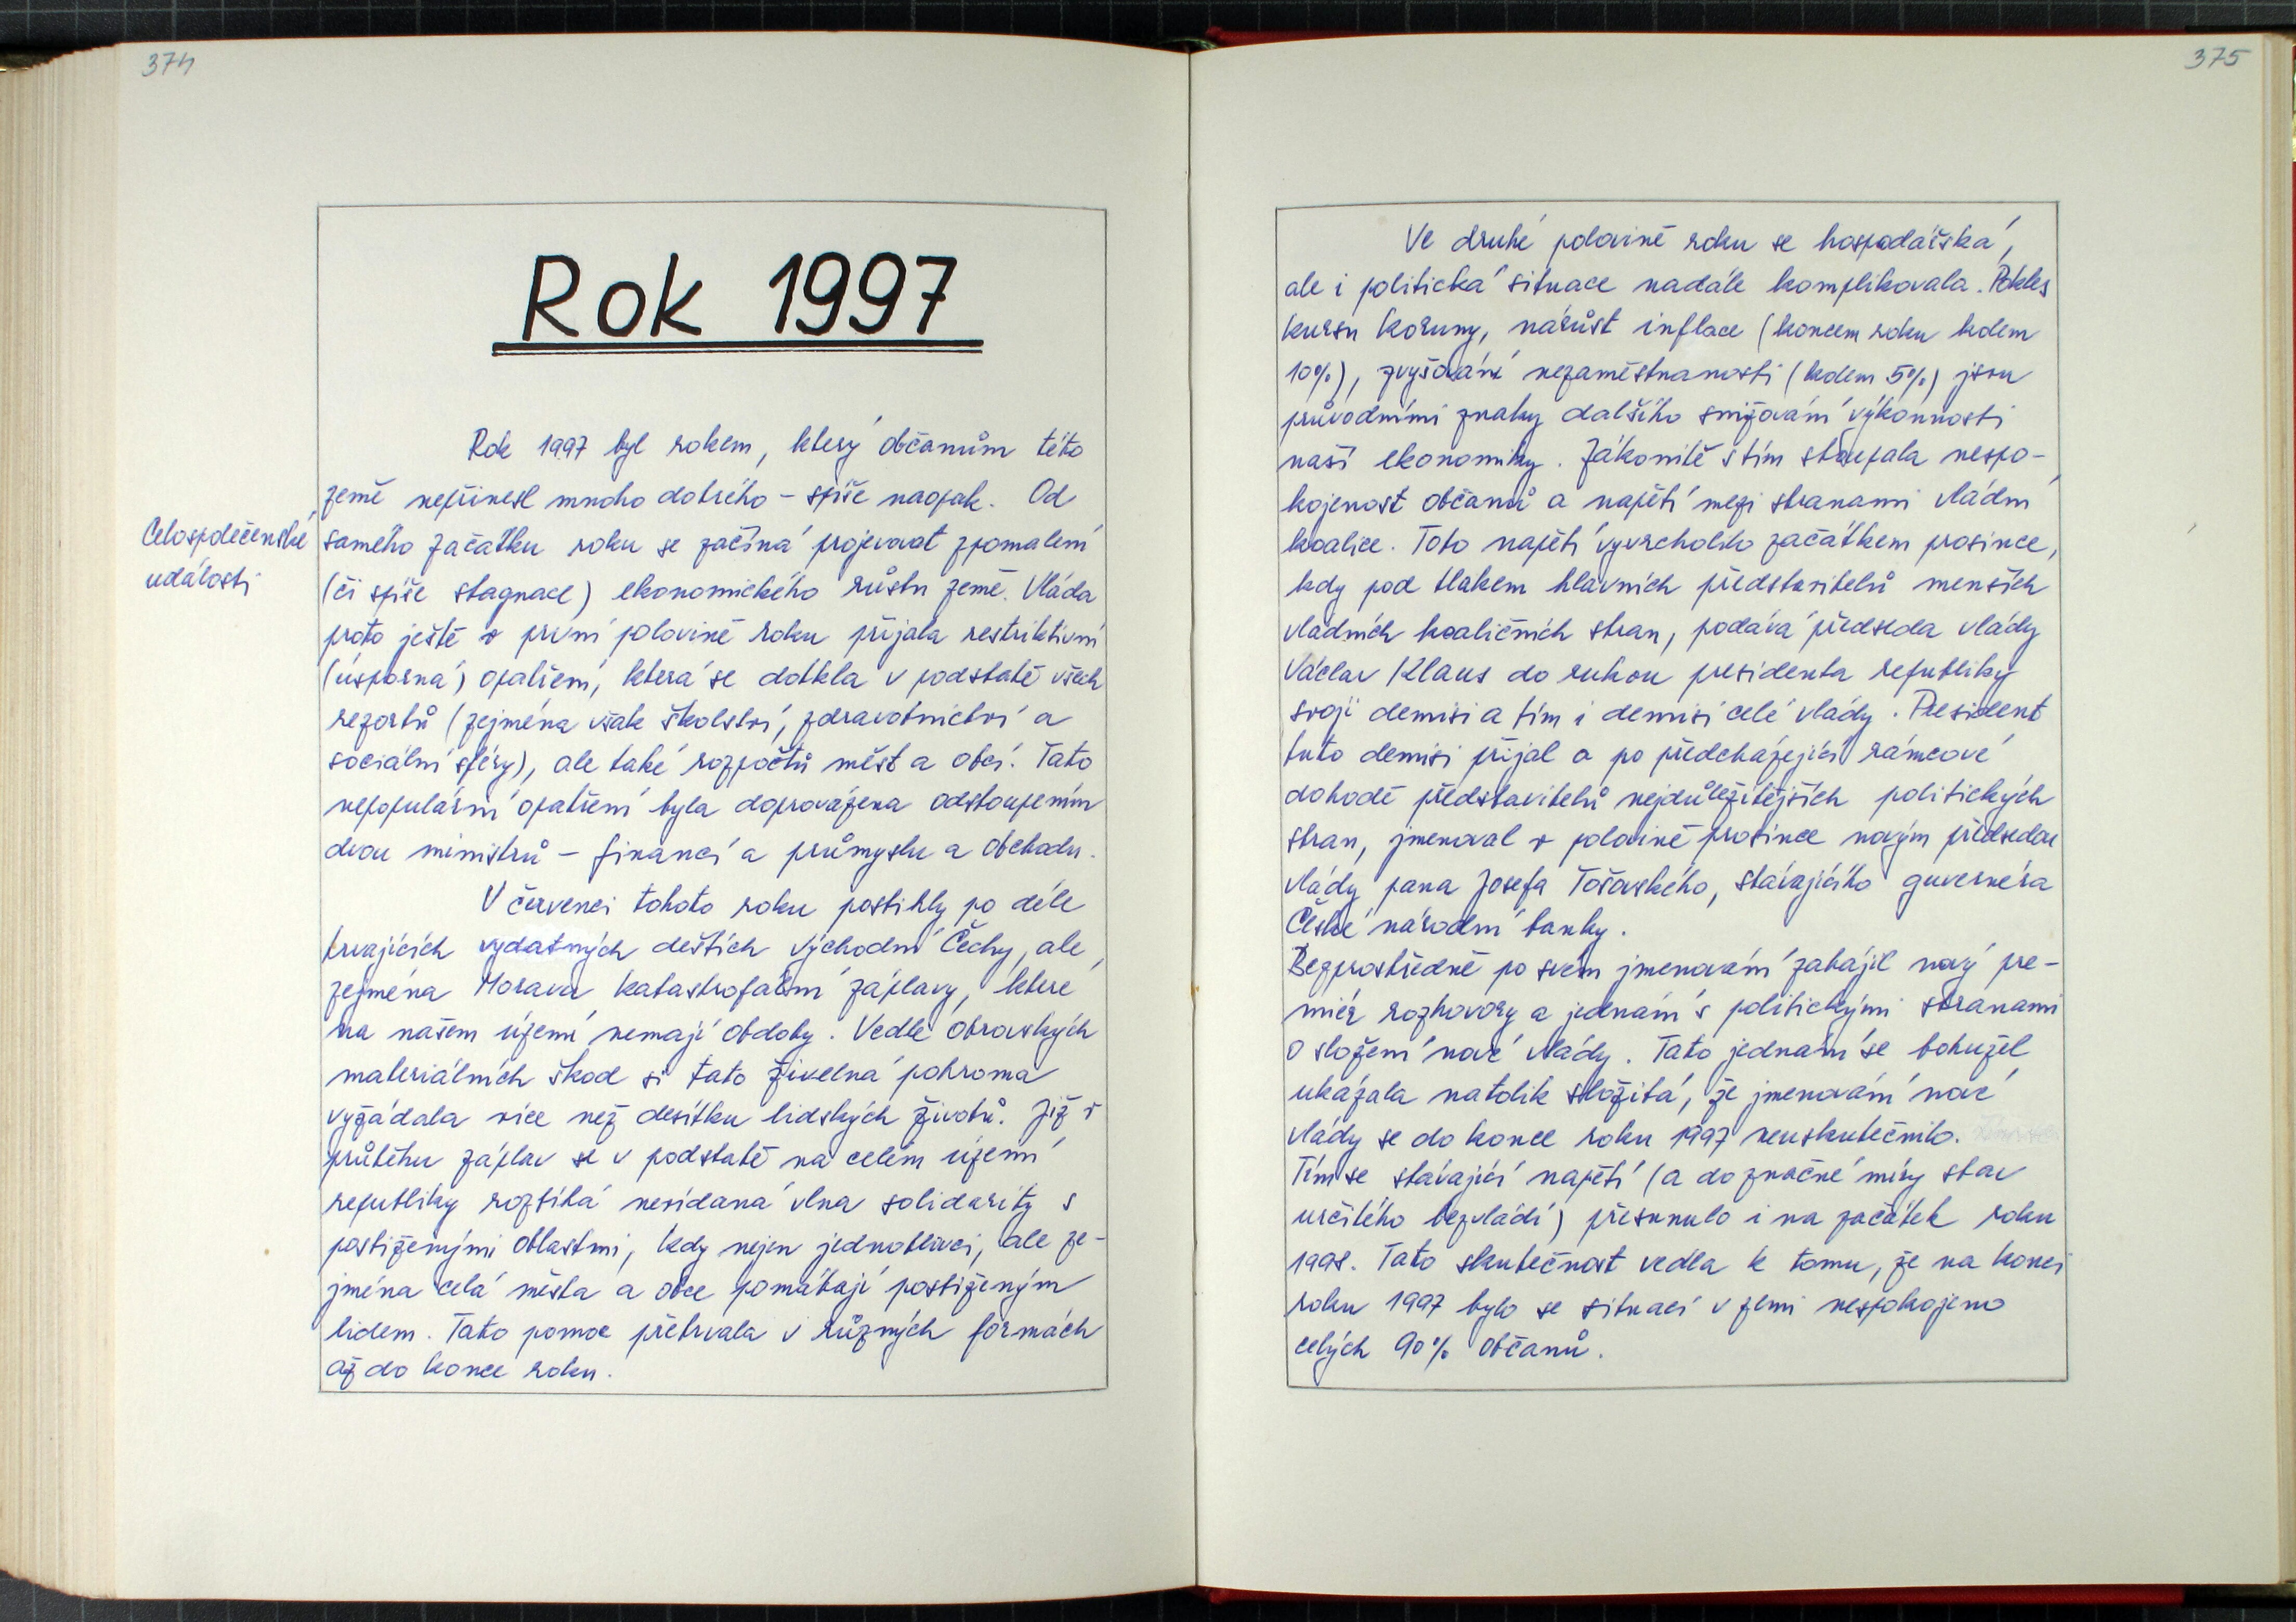 374
Rok 1997
Rok 1997 byl rokem, který občanům této
země nepřinesl mnoho dobrého – spíše naopak. Od
Celospolečenské
události
samého začátku roku se začíná projevovat zpomalení
(či spíše stagnace) ekonomického růstu země. Vláda
proto ještě v první polovině roku přijala restriktivní
(úsporná) opatření, která se dotkla v podstatě všech
rezortů (zejména však školství, zdravotnictví a
sociální sféry), ale také rozpočtů měst a obcí. Tato
nepopulární opatření byla doprovázena odstoupením
dvou ministrů – financí a průmyslu a obchodu.
V červenci tohoto roku postihly po déle
trvajících vydatných deštích východní Čechy, ale
zejména Moravu katastrofální záplavy, které
na našem území nemají obdoby. Vedle obrovských
materiálních škod si tato živelná pohroma
vyžádala více než desítku lidských životů. Již v
průběhu záplav se v podstatě na celém území
republiky rozbíhá nevídaná vlna solidarity s
postiženými oblastmi, kdy nejen jednotlivci, ale ze-
jména celá města a obce pomáhají postiženým
lidem. Tato pomoc přetrvala v různých formách
až do konce roku.
375
Ve druhé polovině roku se hospodářská,
ale i politická situace nadále komplikovala. Pokles
kursu koruny, nárůst inflace (koncem roku kolem
10%), zvyšování nezaměstnanosti (kolem 5%) jsou
průvodními znaky dalšího snižování výkonnosti
naší ekonomiky. Zákonitě s tím stoupala nespo-
kojenost občanů a napětí mezi stranami vládní
koalice. Toto napětí vyvrcholilo začátkem prosince,
kdy pod tlakem hlavních představitelů menších
vládních koaličních stran, podává předseda vlády
Václav Klaus do rukou presidenta republiky
svoji demisi a tím i demisi celé vlády. President
tuto demisi přijal a po předcházející rámcové
dohodě představitelů nejdůležitějších politických
stran, jmenoval v polovině prosince novým předsedou
vlády pana Josefa Tošovského, stávajícího guvernéra
České národní banky.
Bezprostředně po svém jmenování zahájil nový pre-
miér rozhovory a jednání s politickými stranami
o složení nové vlády. Tato jednání se bohužel
ukázala natolik složitá, že jmenování nové
vlády se do konce roku 1997 neuskutečnilo.
Tím se stávající napětí (a do značné míry stav
určitého bezvládí) přesunulo i na začátek roku
1998. Tato skutečnost vedla k tomu, že na konci
roku 1997 bylo se situací v zemi nespokojeno
celých 90% občanů.